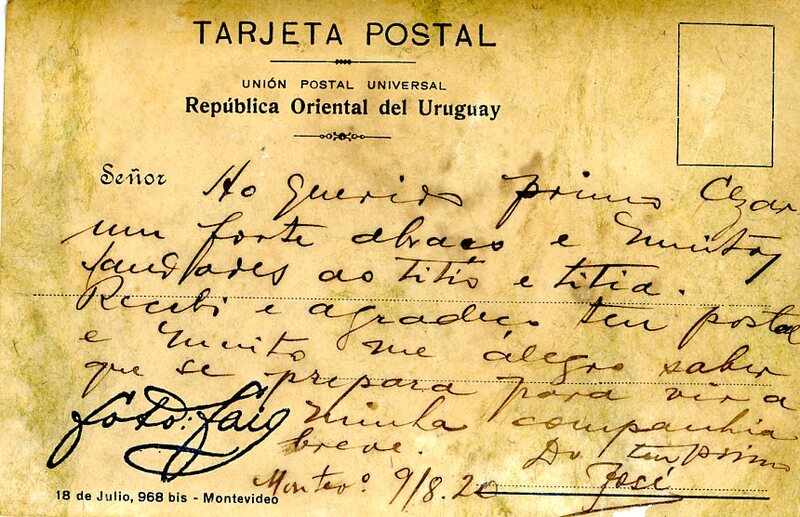 TARJETA POSTAL
UNIÓN POSTAL UNIVERSAL
República Oriental del Uruguay
Señor
Ao Querido primo Cezar
um forte abraço e muitas
saudades ao titio e titia.
Recebi e agradeço teu postal
e muito me álegro saber
que se prepara para vir a
minha companhia
breve. Do teu primo
José
Montevo. 9/8.20
foto:
18 de Julio, 968 bis - Montevideo